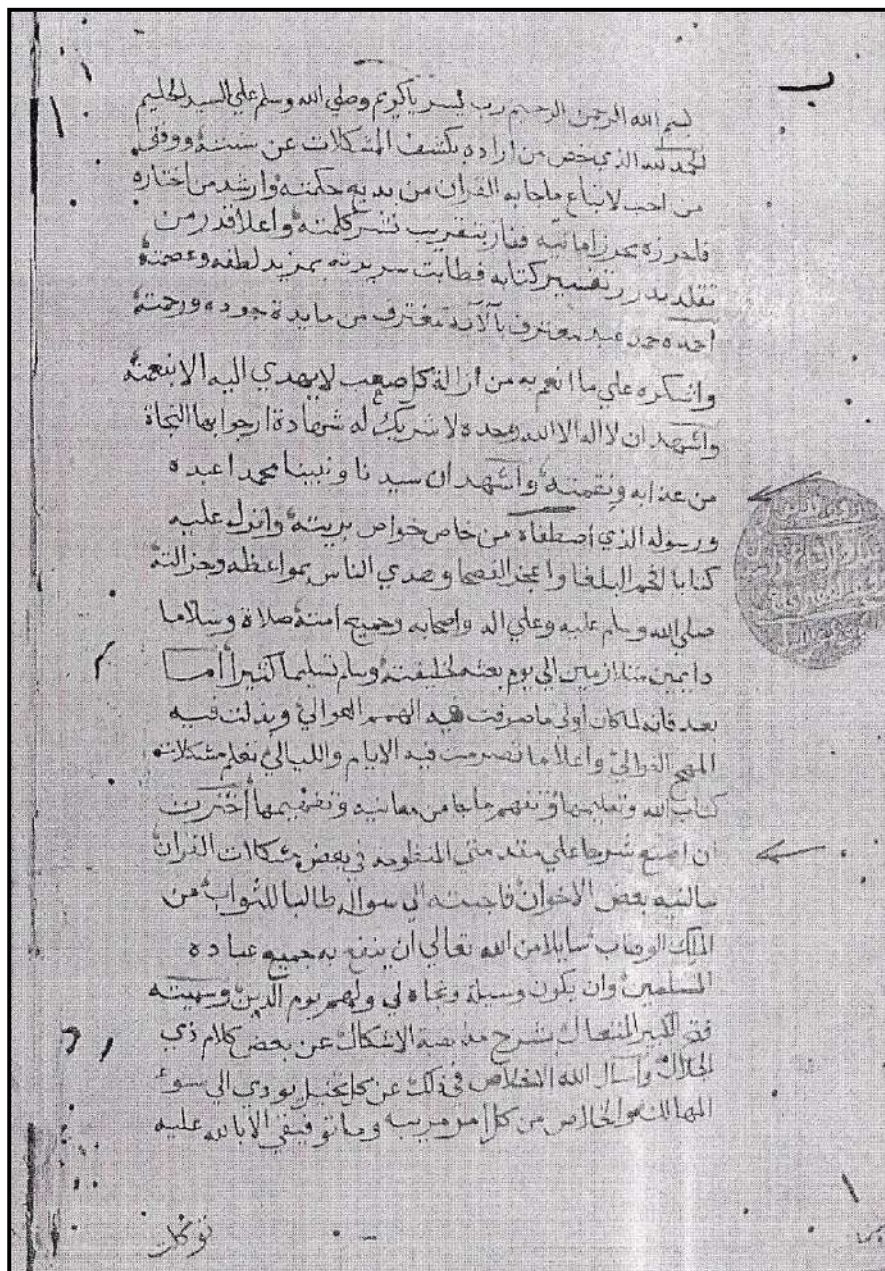 بسم الله الرحمن الرحيم رب يسر ياكريم وصلي الله وسلم علي السيد الحليم
الحمد لله الذي خص من اراده بكشف المشكلات عن سنته ووفق
من احب لاتباع ماجا به القران من بديع حكمته وارشد من اختاره
فاحرزه بحرز امانيه ففاز بتقريب نشر كلمته واعلا قدر من
تقلد بدرر تفسير كتابه فطابت سريرته بمزيد لطفه وعصمته
احمده حمد عبد معترف بآلآئه مغترف من مايدة جوده ورحمته
واشكره علي ما انعم به من ازالة كل صعب لايهدي اليه الا بنعمته
واشهد ان لا اله الا الله وحده لا شريك له شهادة ارجوا بها النجاة
من عذابه ونقمته واشهد ان سيدنا ونبينا محمدا عبده
ورسوله الذي اصطفاه من خاص خواص بريته وانزل عليه
كتابا افحم البلغا واعجز الفصحا وهدي الناس بمواعظه وجزالته
صلي الله وسلم عليه وعلي اله واصحابه وجميع امته صلاة وسلاما
دايمين متلازمين الي يوم بعثه لخليقته وسلم تسليما كثيرا أما
بعد فانه لما كان أولي ماصرفت فيه الهمم العوالي وبذلت فيه
المهج الغوالي واعلا ما تصرمت فيه الايام والليالي تعلم مشكلات
كتاب الله وتعليمها وتفهم ماجا من معانيه وتفهيمها أخترت
ان اضع شرحا علي مقدمتي المنظومه في بعض مشكلات القران
سالنيه بعض الاخوان فاجبته الي سواله طالبا للثواب من
الملك الوهاب سايلا من الله تعالي ان ينفع به جميع عباده
المسلمين وان يكون وسيلة ونجاه لي ولهم يوم الدين وسميته
فتح الكبير المتعال بشرح مذهبة الاشكال عن بعض كلام ذي
الجلال وأسأل الله الاخلاص في ذلك عن كل تخيل يودي الي سوء
المهالك والخلاص من كل امر مريب وما توفيقي الا بالله عليه
توكلت